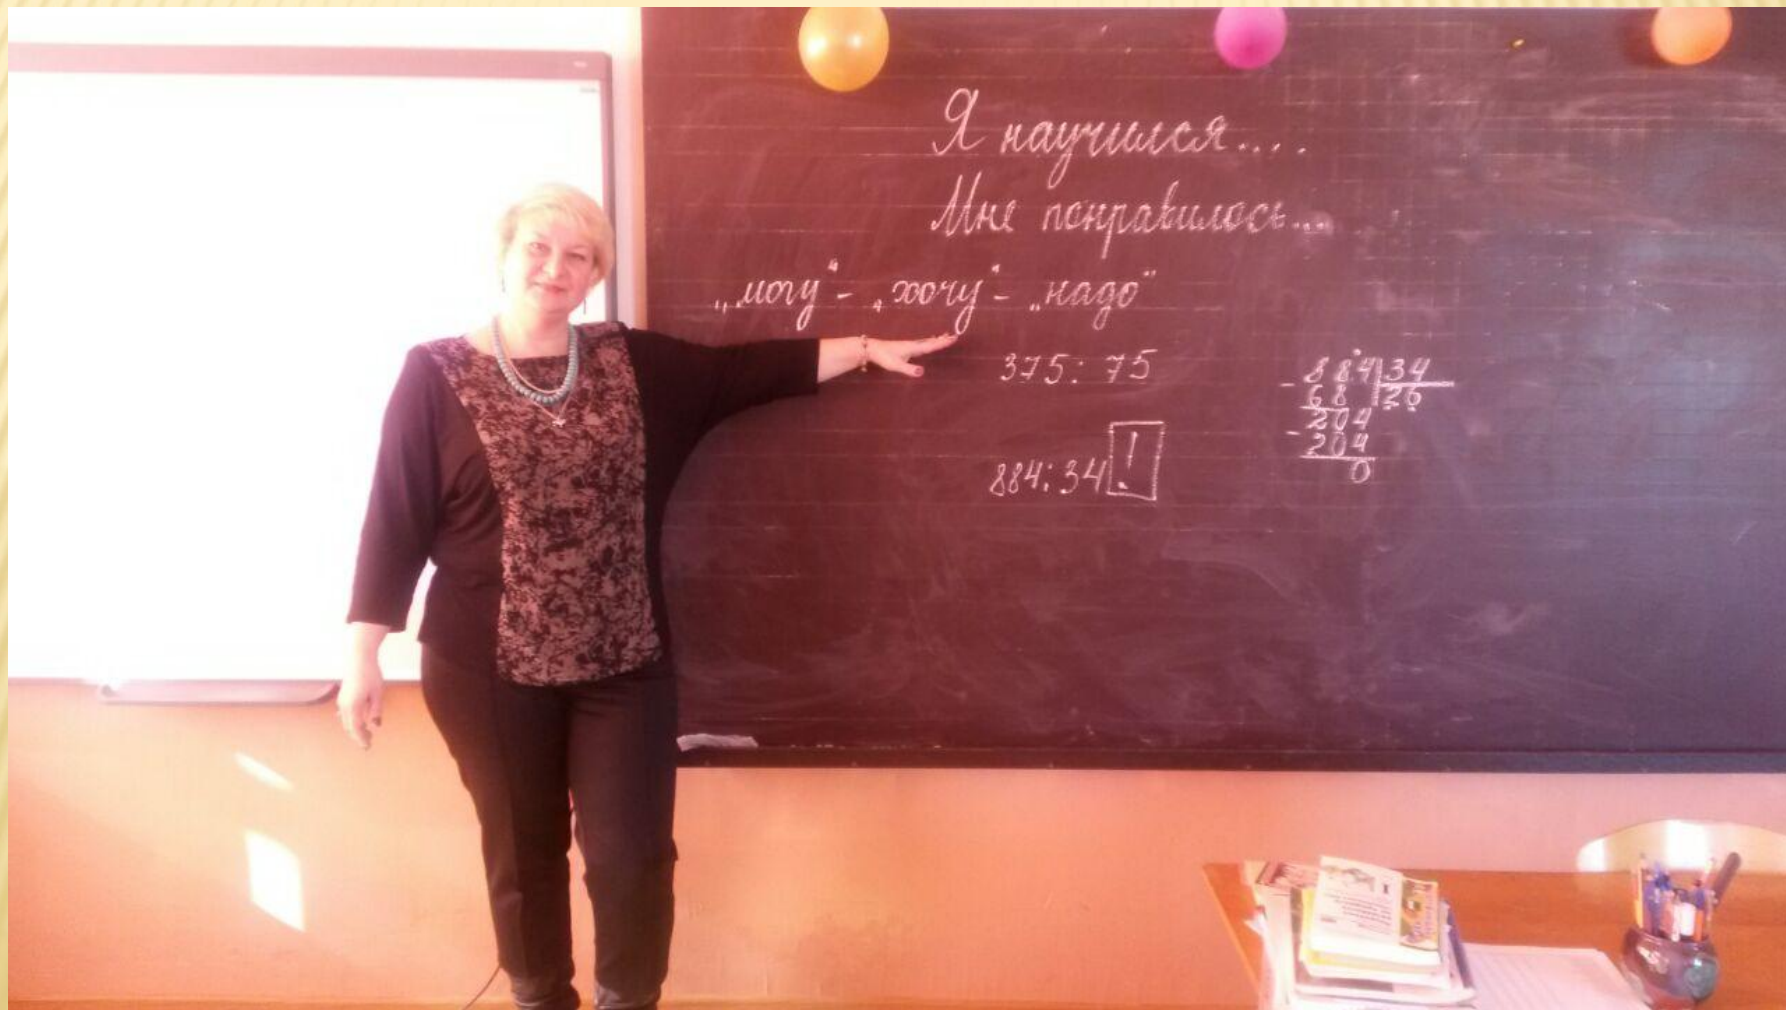 Я научился....
Мне понравилось...
„могу“ - „хочу“ - „надо“
375 : 75
884 : 34 !
- 884 | 34
68 26
204
- 204
0